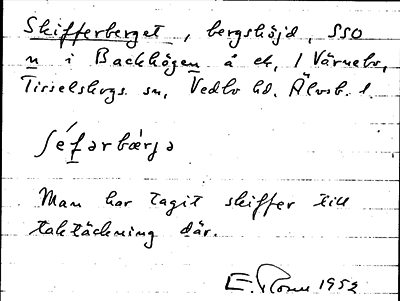 Skifferberget, bergshöjd, SSO
n i Backhögen å ek, 1 Värnebo,
Tisselskogs sn, Vedbo hd. Älvsb. l.
ʃéfərbærjə
Man har tagit skiffer till
taktäckning där.
E. 1952